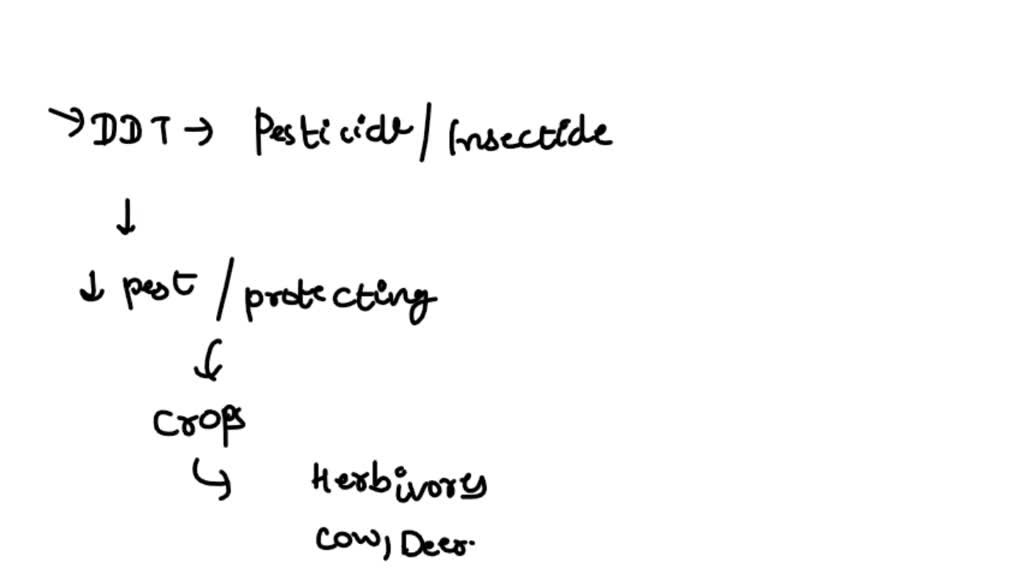 → DDT → Pesticide / Insectide
↓
↓ pest / protecting
↓
Crops
↳ Herbivores
Cow, Deer.